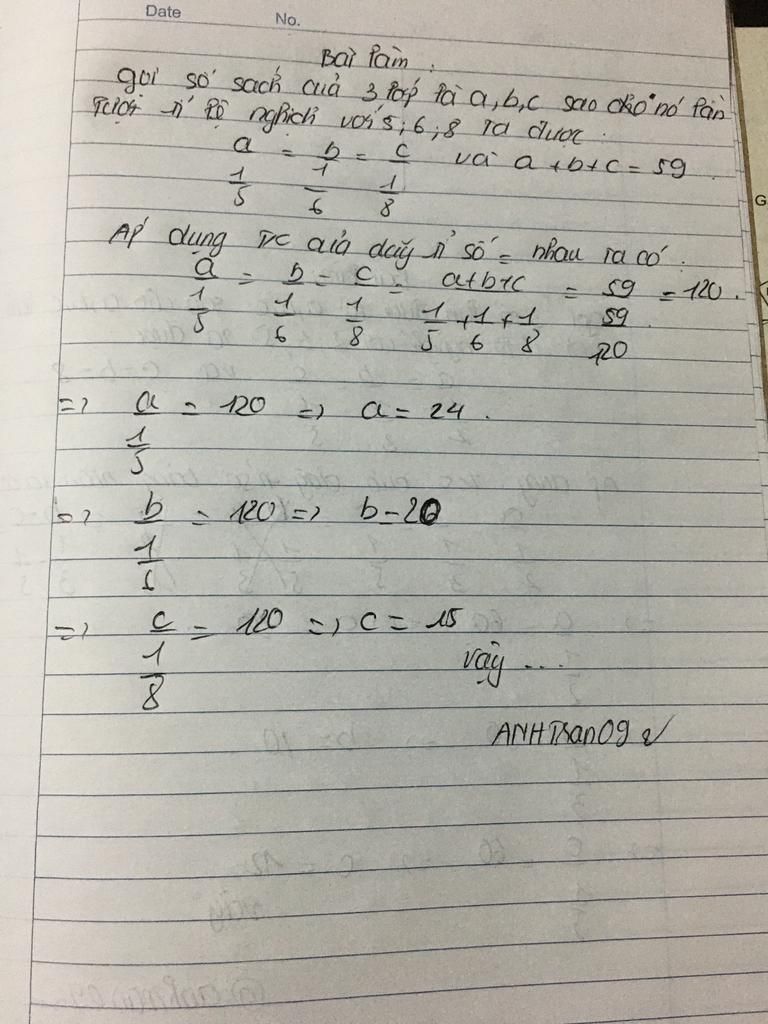 Date No.
Bài làm :
gọi số sách của 3 lớp là a,b,c sao cho nó lần
lượt tỉ lệ nghịch với 5; 6; 8 ta được :
a/(1/5) = b/(1/6) = c/(1/8) và a+b+c = 59
Áp dụng TC của dãy tỉ số = nhau ta có :
a/(1/5) = b/(1/6) = c/(1/8) = (a+b+c)/(1/5+1/6+1/8) = 59/(59/120) = 120.
=> a/(1/5) = 120 => a = 24.
=> b/(1/6) = 120 => b = 20
=> c/(1/8) = 120 => c = 15
vậy ...
ANHTRan09
G